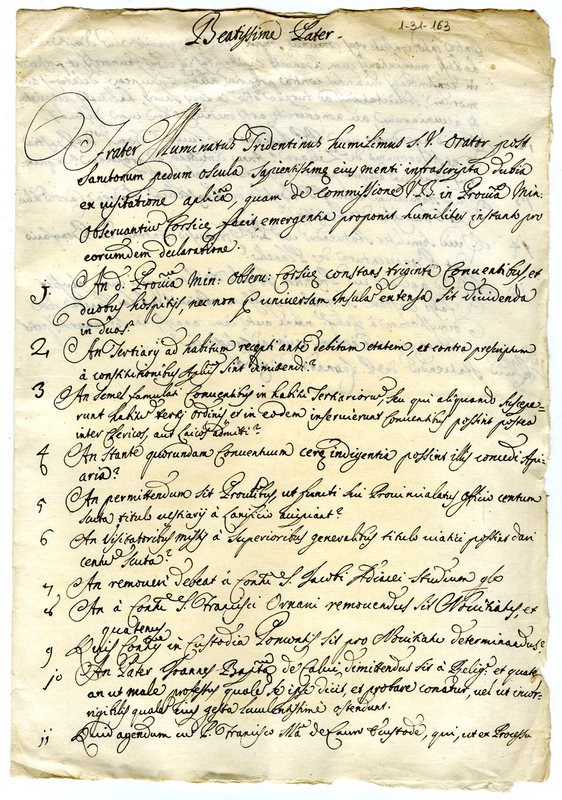 1-31-163
Beatissime Pater.
Frater Illuminatus Tridentinus humilimus S. V. Orator post
sanctorum pedum oscula sapientissimę eius menti infrascripta dubia
ex visitatione aplicā, quam de commissione in Provā Min:
Observantiu Corsicę fecit, emergentia proponit humiliter instans pro
eorumdem declaratione.
1 An d. Provā Min: Observ: Corsicę constans triginta Conventibus et
duobus hospitijs, nec non universam Insulā extensa sit dividenda
in duos?
2 An Tertiarij ad habitum recepti ante debitam etatem, et contra prescriptum
à constitutionibus sint dimittendi?
3 An semel famulati Conventibus in habitu Tertiariorum, seu qui aliquando suscepe-
runt habitū tertij ordinis et in eodem inservierunt Conventibus possint postea
inter Clericos, aut Laicos admitti?
4 An stante quorundam Conventuum cerę indigentia possint illis concedi Api-
aria?
5 An permittendum sit Provlibus, ut functi sui Provincialatus officio centum
scuta titulo vestiarij à Lanificio accipiant?
6 An Visitatoribus missis à Superioribus generalibus titulo viatici possint dari
centū scuta?
7 An removeri debeat à Contu S. Jacobi Adiacei studium gle
8 An à Contu S. Francisci Ornani removendus sit Novitiatus, et
quatenus
9 Quis Contus in Custodia Pomontis sit pro Novitiatu determinandus?
10 An Pater Joannes Bapta de Calvi, dimittendus sit à Relige et quate
an ut male professus qualē se ipse dicit, et probare conatur, vel ut incor-
rigibilis qualē eius gesta luculentissime ostendunt.
11 Quid agendum cū P. Francisco Ma de Custode, qui, ut ex Processu